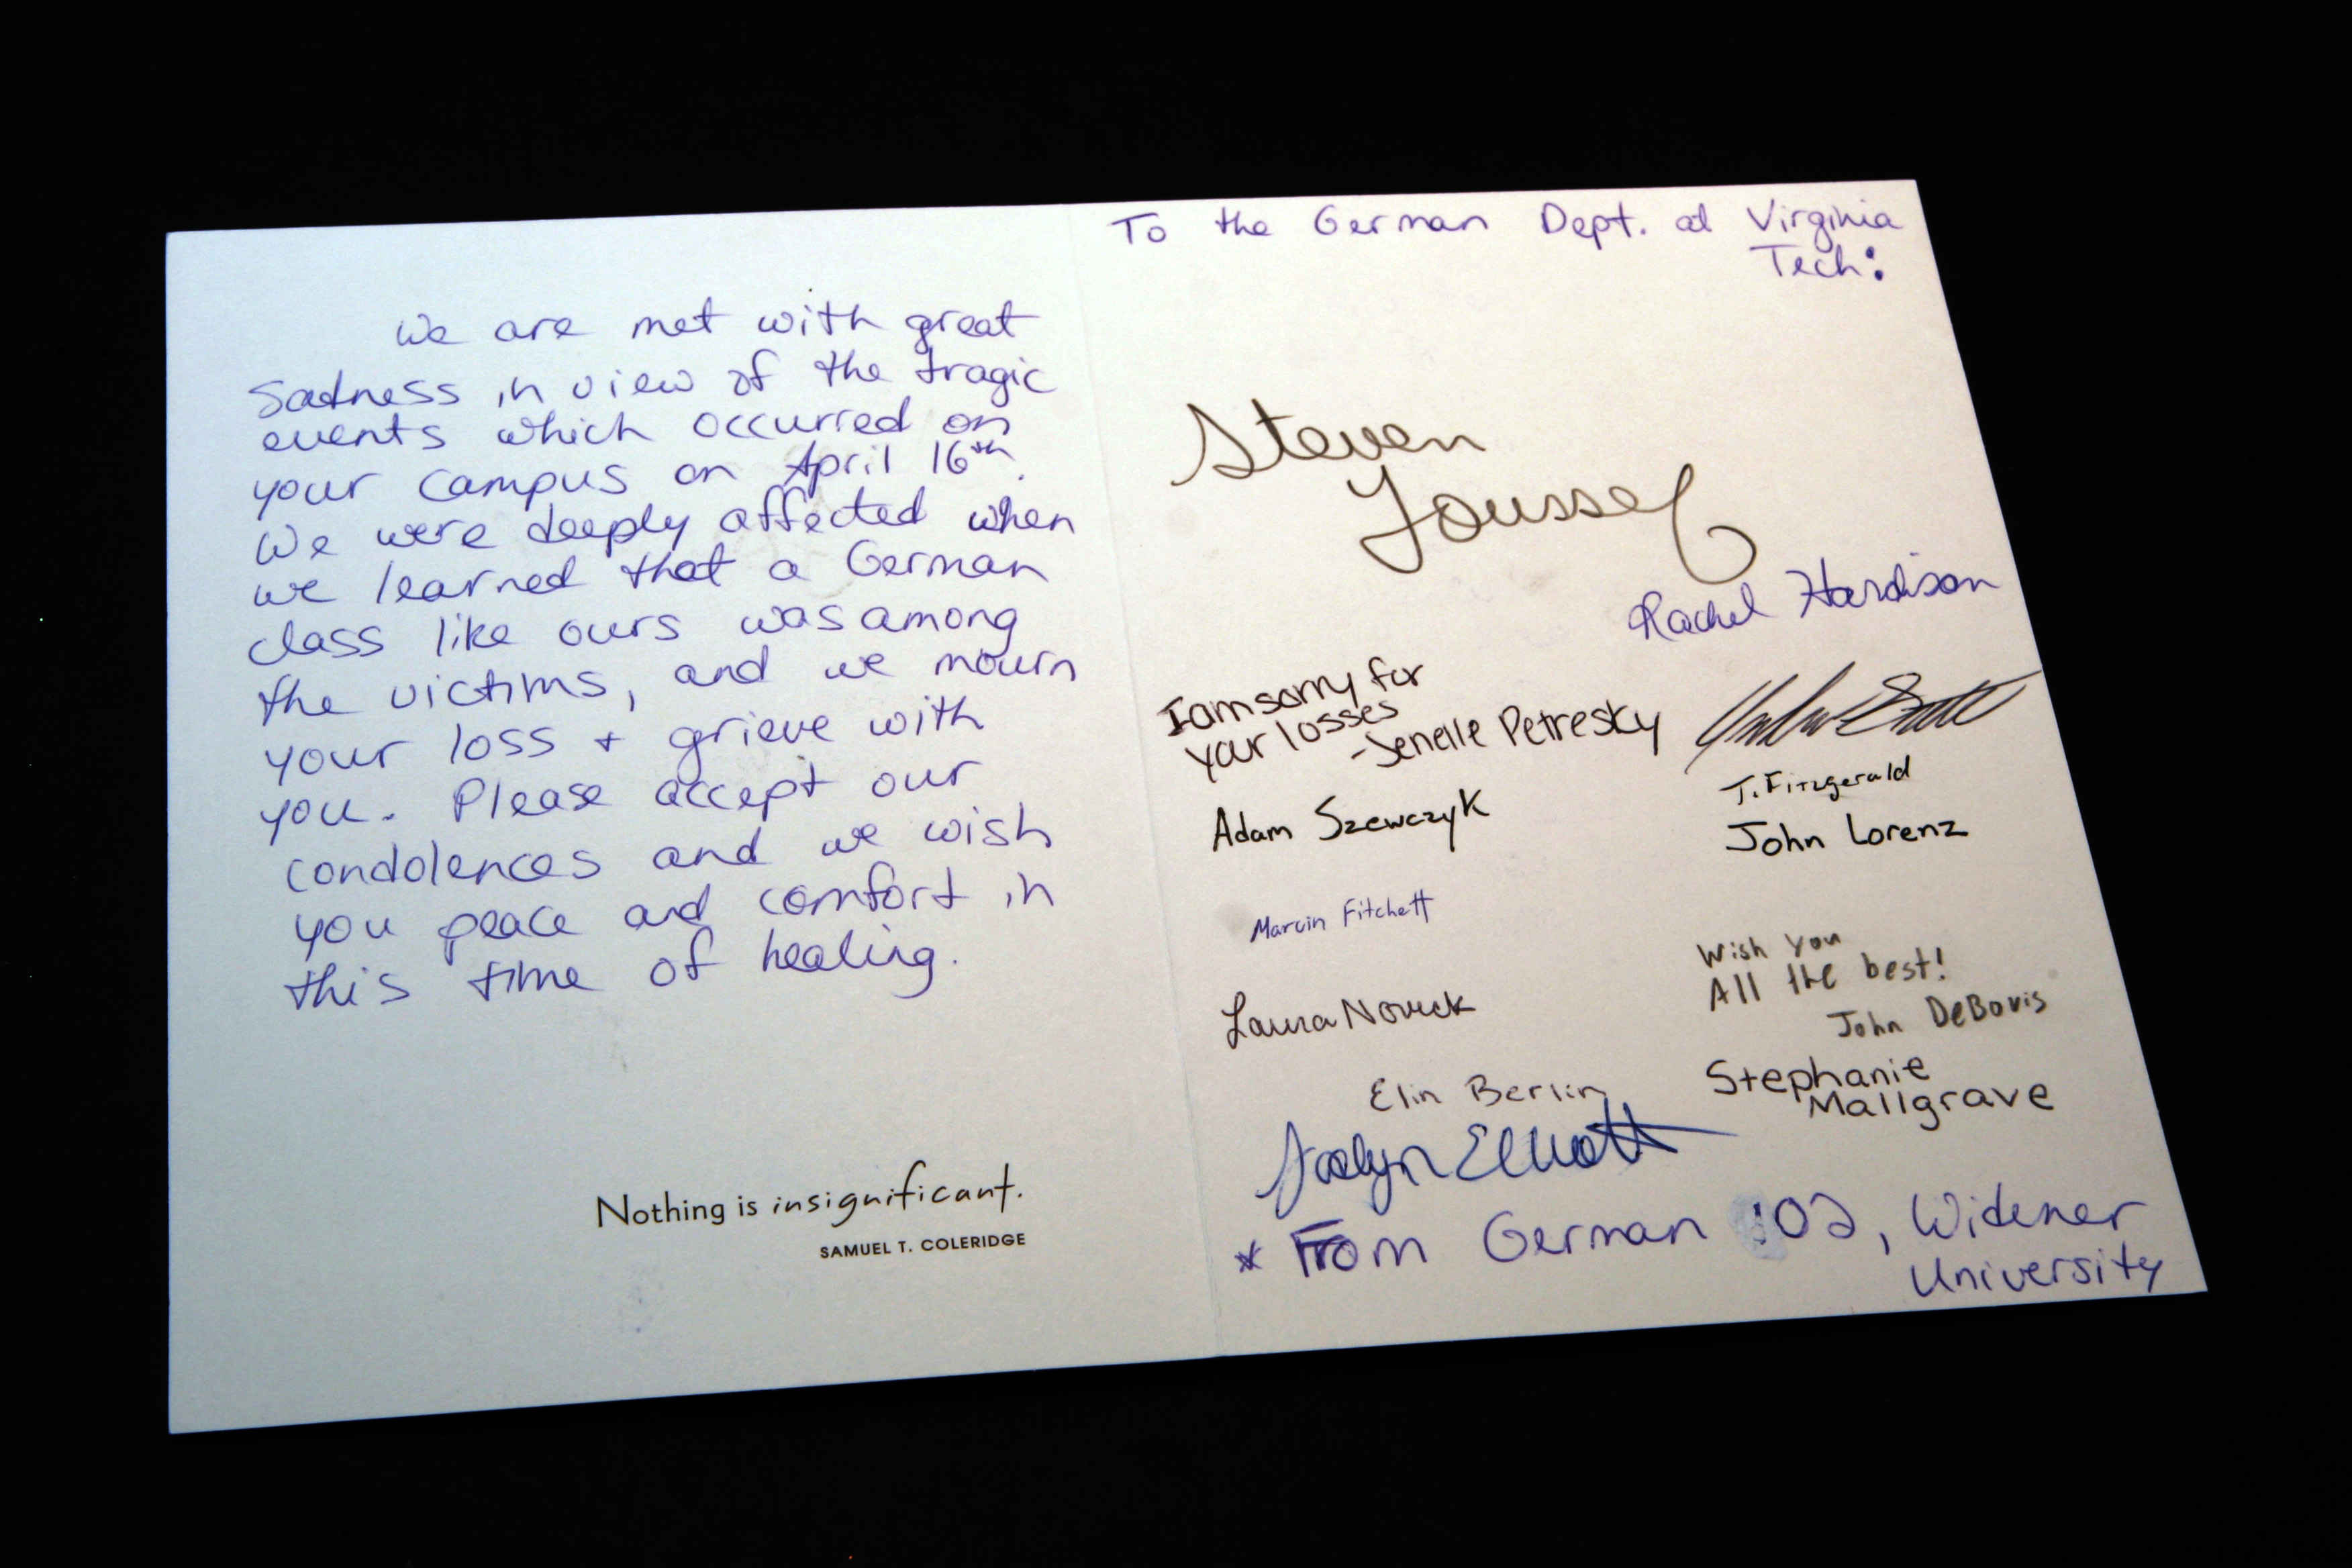 We are met with great
sadness in view of the tragic
events which occurred on
your campus on April 16th.
We were deeply affected when
we learned that a German
class like ours was among
the victims, and we mourn
your loss + grieve with
you. Please accept our
condolences and we wish
you peace and comfort in
this time of healing.
Nothing is insignificant.
SAMUEL T. COLERIDGE
To the German Dept. at Virginia
Tech:
Steven
Youssef
Rachel Hardison
I am sorry for
your losses
-Jenelle Petresky
T. Fitzgerald
Adam Szewczyk
John Lorenz
Marvin Fitchett
Wish you
All the best!
John DeBovis
Laura Novick
Stephanie
Mallgrave
Elin Berlin
Elliott
* From German 102, Widener
University